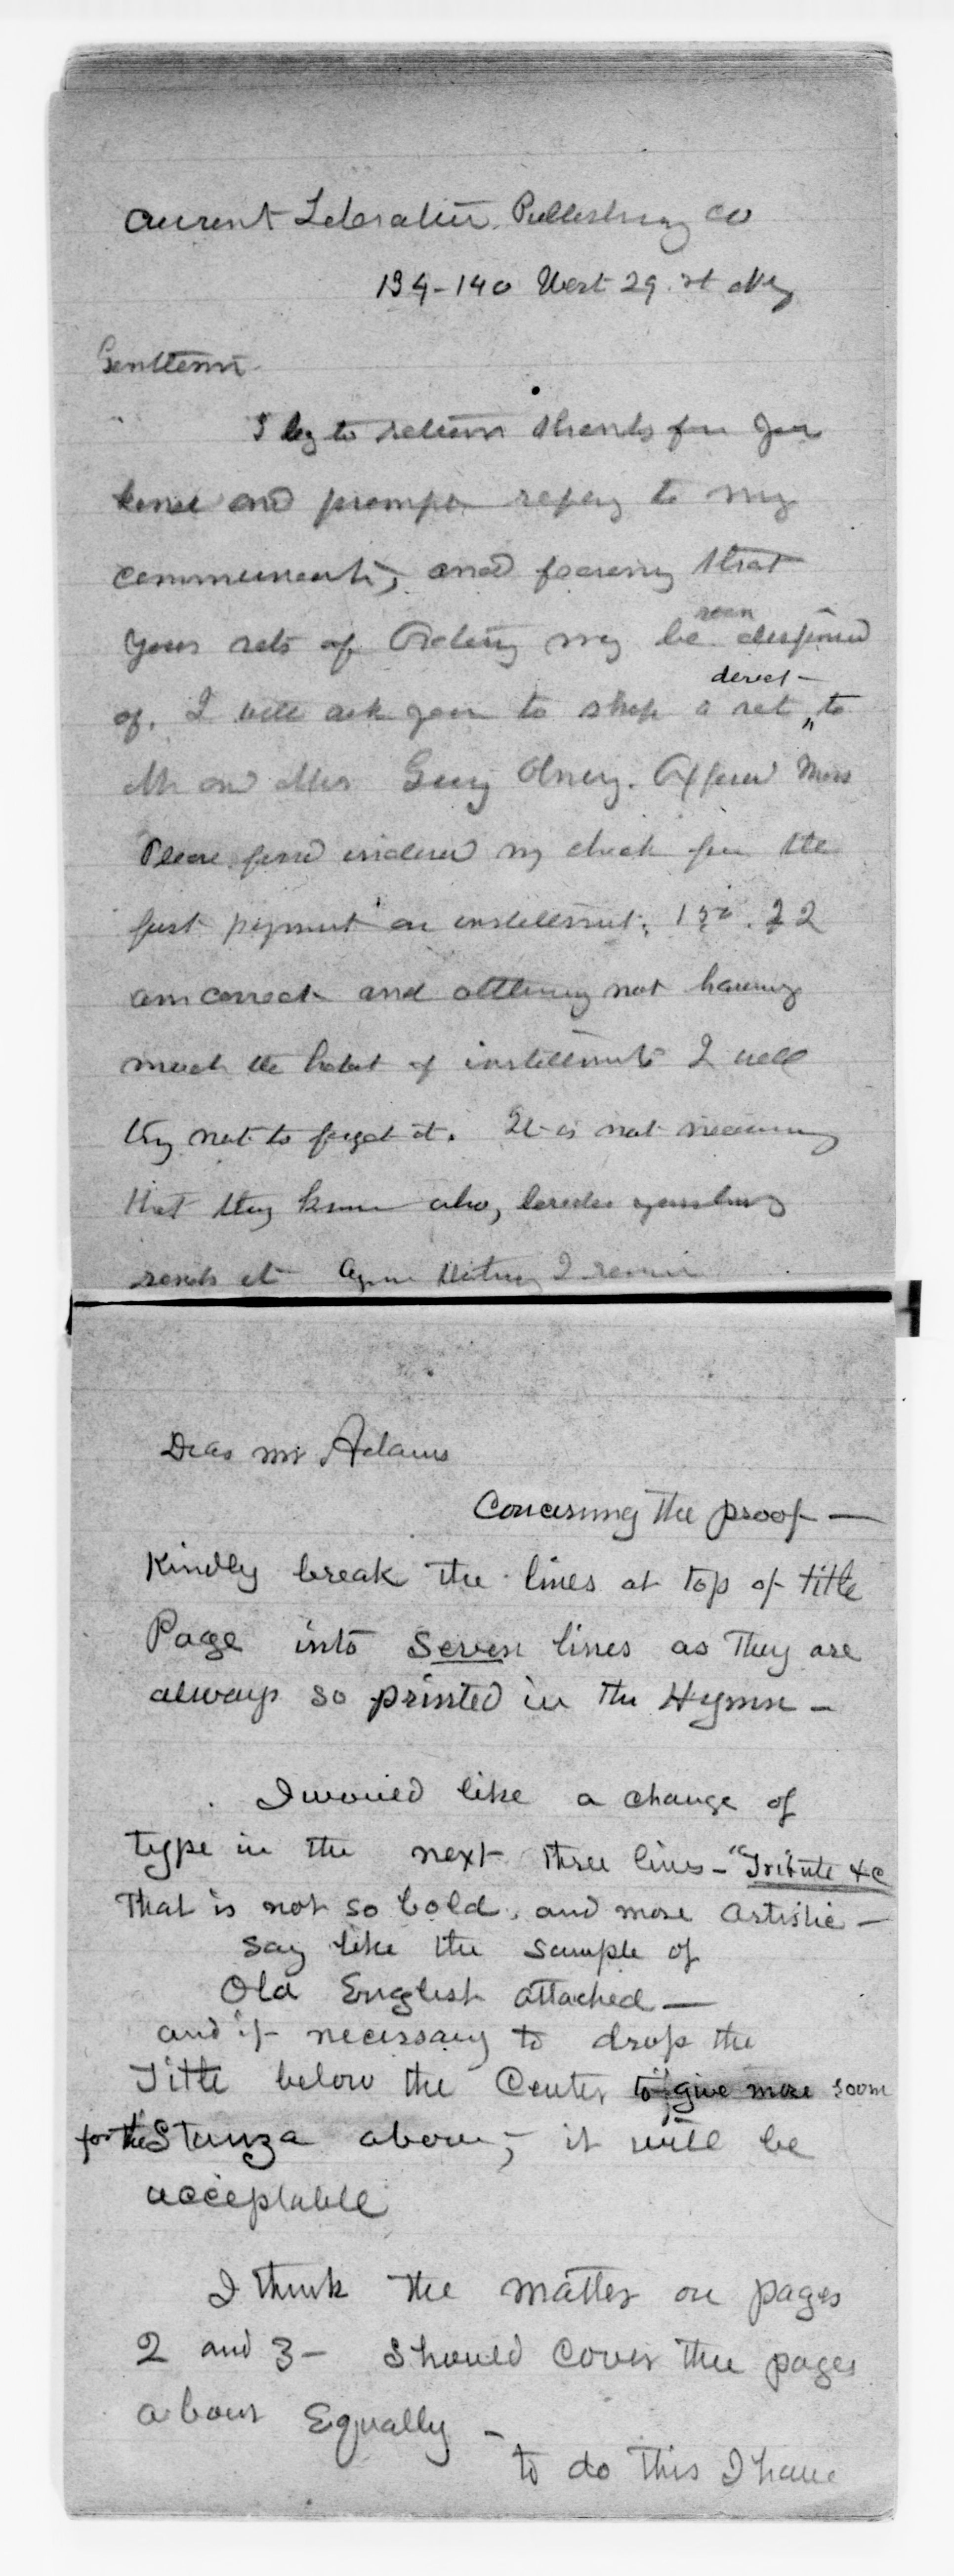 Current Literature Publishing Co
134-140 West 29. st NY
Gentlemen
I beg to return thanks for your
kind and prompt reply to my
communication, and fearing that
your sets of may be soon disposed
of. I will ask you to ship a set direct to
Mr and Mrs Olney. Oxford Mass
Please find inclosed my check for the
first payment on installment,
am correct and not having
much the habit of installments I will
try not to forget it. It is not necessary
that they know who, besides yourselves
sends it Again I remain
Dear Mr Adams
Concerning the proof —
Kindly break the lines at top of title
Page into Seven lines as They are
always so printed in the Hymn —
I would like a change of
type in the next three lines - "Tribute &c
That is not so bold, and more artistic —
say like the sample of
Old English attached —
and if necessary to drop the
Title below the Center to give more room
for the Stanza above, it will be
acceptable
I think the matter on pages
2 and 3 - should cover the pages
about Equally —
to do this I have